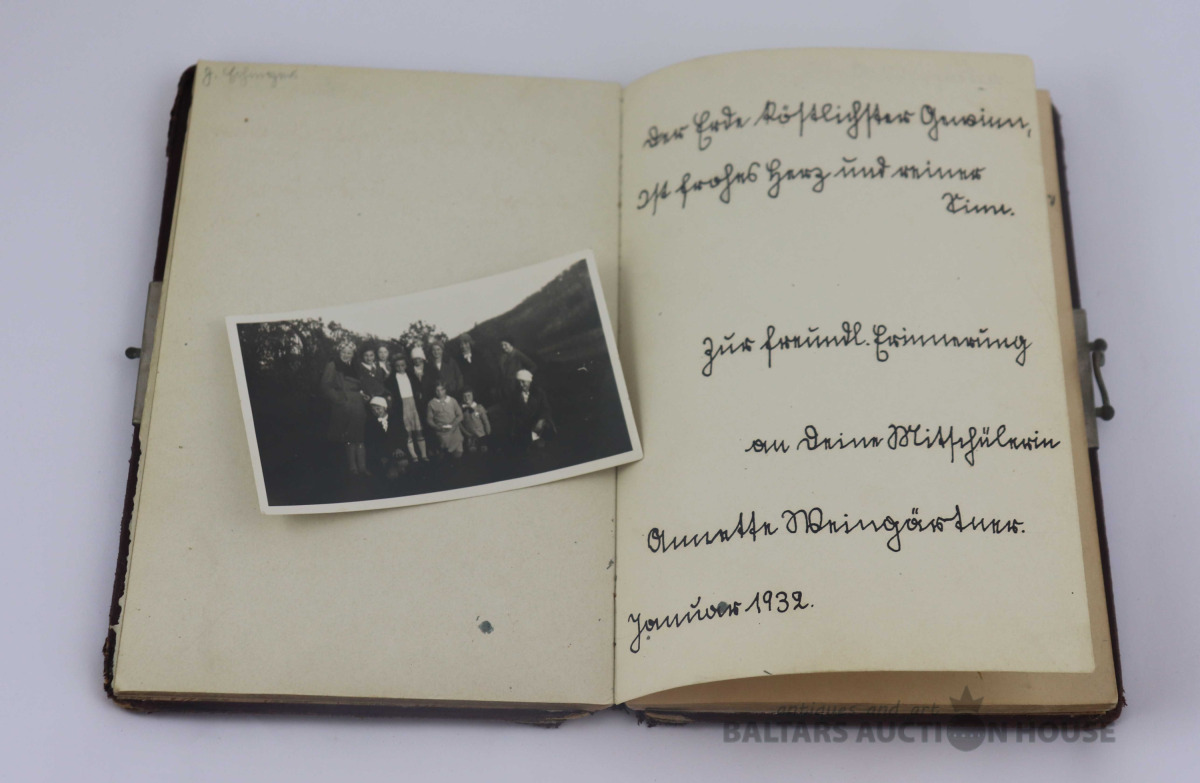 Der Erde köstlichster Gewinn,
Ist frohes Herz und reiner
Sinn.
Zur freundl. Erinnerung
an Deine Mitschülerin
Annette Weingärtner.
Januar 1932.
antiques and art
BALTARS AUCTION HOUSE